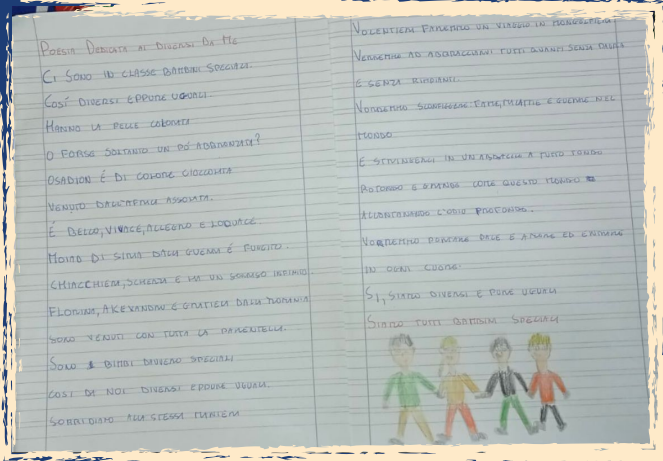 POESIA DEDICATA AI DIVERSI DA ME
CI SONO IN CLASSE BAMBINI SPECIALI.
COSÌ DIVERSI EPPURE UGUALI.
HANNO LA PELLE COLORATA
O FORSE SOLTANTO UN PÓ ABBRONZATA?
OSADION É DI COLORE CIOCCOLATA
VENUTO DALL'AFRICA ASSOLATA.
É BELLO, VIVACE, ALLEGRO E LOQUACE.
DI SIRIA DALLA GUERRA É FUGGITO.
CHIACCHIERA, SCHERZA E HA UN SORRISO
FLORINA, ALEXANDRA E DALLA ROMANIA
SONO VENUTI CON TUTTA LA PARENTELLA.
SONO BIMBI DAVVERO SPECIALI
COSI DA NOI DIVERSI EPPURE UGUALI.
SORRIDIAMO ALLA STESSA MANIERA
VOLENTIERI FAREMMO UN VIAGGIO IN MONGOLFIERA
VERREMMO AD ABBRACCIARVI TUTTI QUANTI SENZA PAURA
E SENZA RIMPIANTI.
VORREMMO SCONFIGGERE FAME, MALATTIE E GUERRE NEL
MONDO
E STRINGERCI IN UN A TUTTO TONDO
ROTONDO E GRANDE COME QUESTO MONDO
ALLONTANANDO L'ODIO PROFONDO.
VORREMMO PORTARE PACE E AMORE ED ENTRARE
IN OGNI CUORE.
SI, SIAMO DIVERSI E PURE UGUALI
SIAMO TUTTI BAMBINI SPECIALI